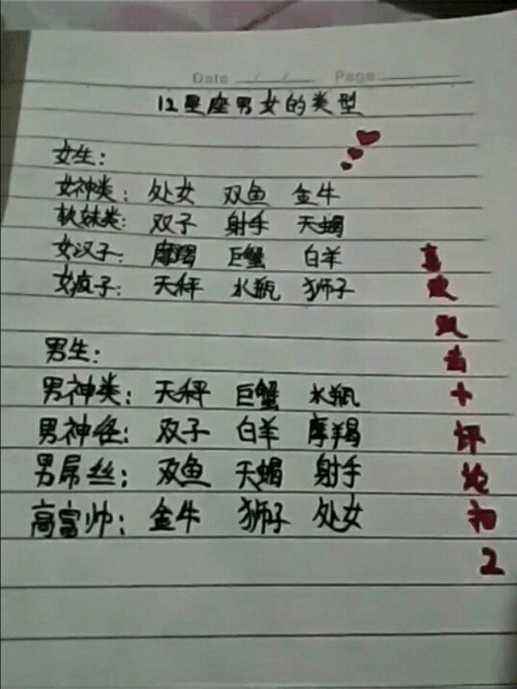 Date / / Page
12星座男女的类型
女生：
女神类：处女 双鱼 金牛
软妹类：双子 射手 天蝎
女汉子：摩羯 巨蟹 白羊
女疯子：天秤 水瓶 狮子
男生：
男神类：天秤 巨蟹 水瓶
男神经：双子 白羊 摩羯
男屌丝：双鱼 天蝎 射手
高富帅：金牛 狮子 处女
喜
欢
双
击
十
评
论
扣
2